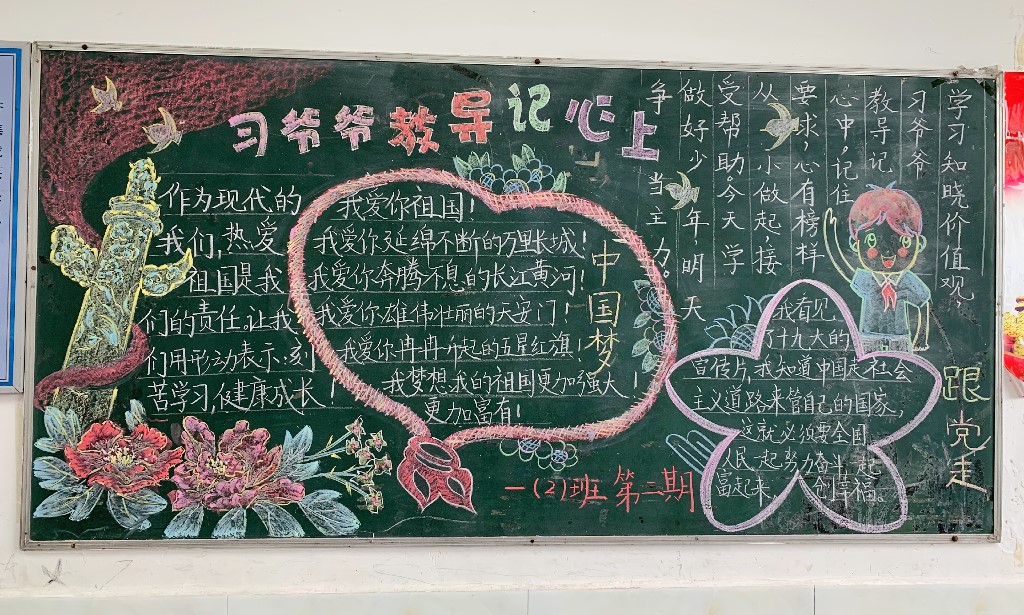 习爷爷教导记心上
作为现代的
我们,热爱
祖国是我
们的责任。让我
们用形动表示:刻
苦学习,健康成长!
我爱你祖国!
我爱你延绵不断的万里长城!
我爱你奔腾不息的长江黄河!
我爱你雄伟壮丽的天安门!
我爱你冉冉升起的五星红旗!
我梦想,我的祖国更加强大!
更加富有!
中国梦
学习知晓价值观,
习爷爷
教导记
心中,记住
要求,心有榜样
从小做起,接
受帮助今天学
做好少年,明天
争当主力。
我看见
了十九大的
宣传片,我知道中国走社会
主义道路来管自己的国家,
这就必须要全国
人民一起努力奋斗,一起
富起来,创幸福。
跟党走
一(2)班 第二期